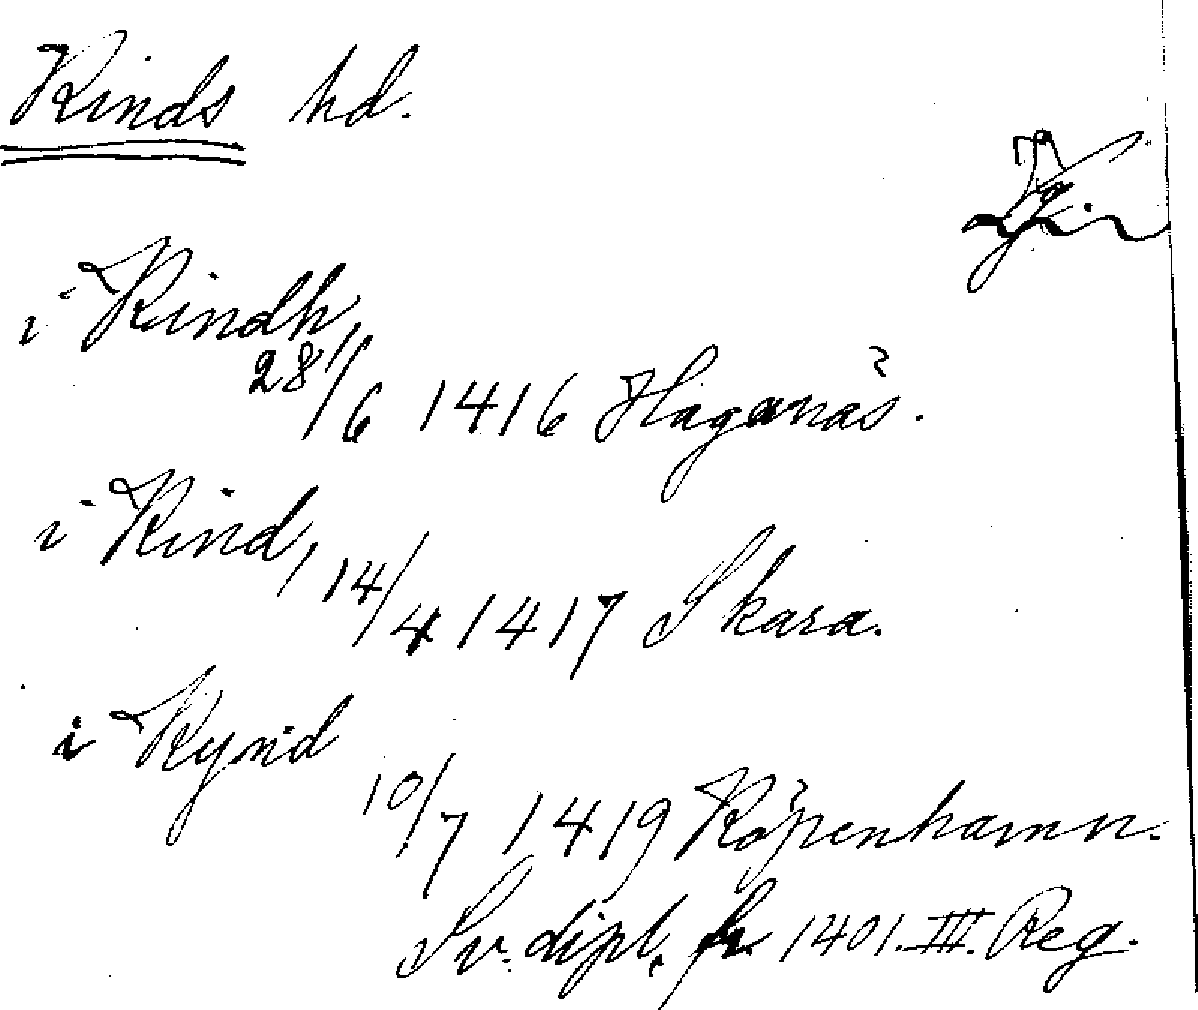 Kinds hd.
Vg.
i Kindh,
28/6 1416 Haganäs.
i Kind, 14/4 1417 Skara.
i Kynd
10/7 1419 Köpenhamn.
Sv. dipl. fr. 1401. III. Reg.